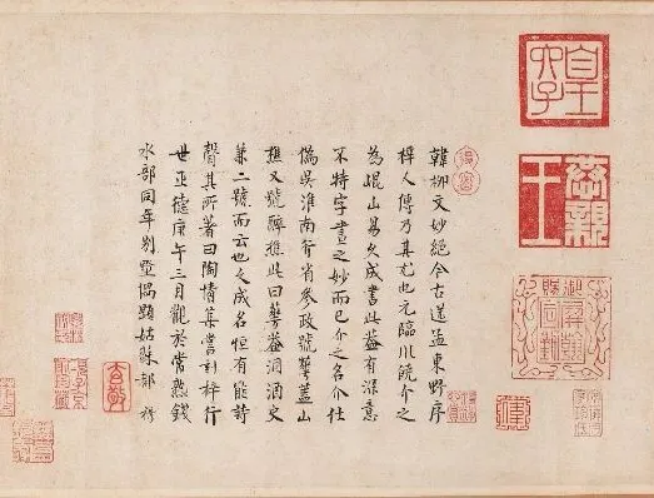 韓柳文妙絕今古送孟東野序
梓人傳乃其尤也元臨川饒介之
為崐山易久成書此葢有深意
不特字畫之妙而已介之名介仕
僞吳淮南行省參政號華葢山
樵又號醉樵此曰華葢洞酒史
兼二號而云也久成名恒有能詩
聲其所著曰陶情集嘗刻梓行
世正德庚午三月觀於常熟錢
水部同年別墅偶題姑蘇都穆